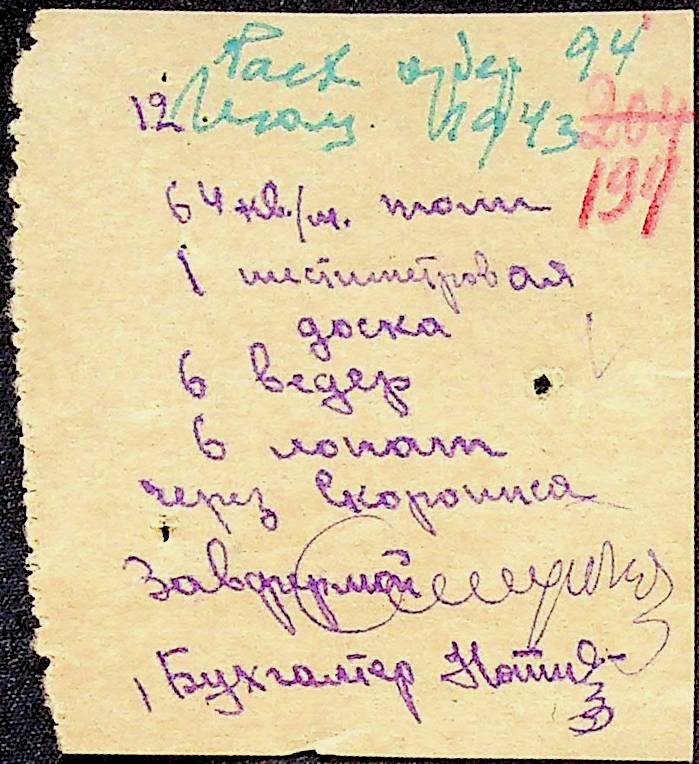 Расх ордер 94
12 Июль 1943 204
191
64 кв./м. толи
1 шестиметровая
доска
6 ведер
6 лопат
через
Завфермой
Бухгалтер